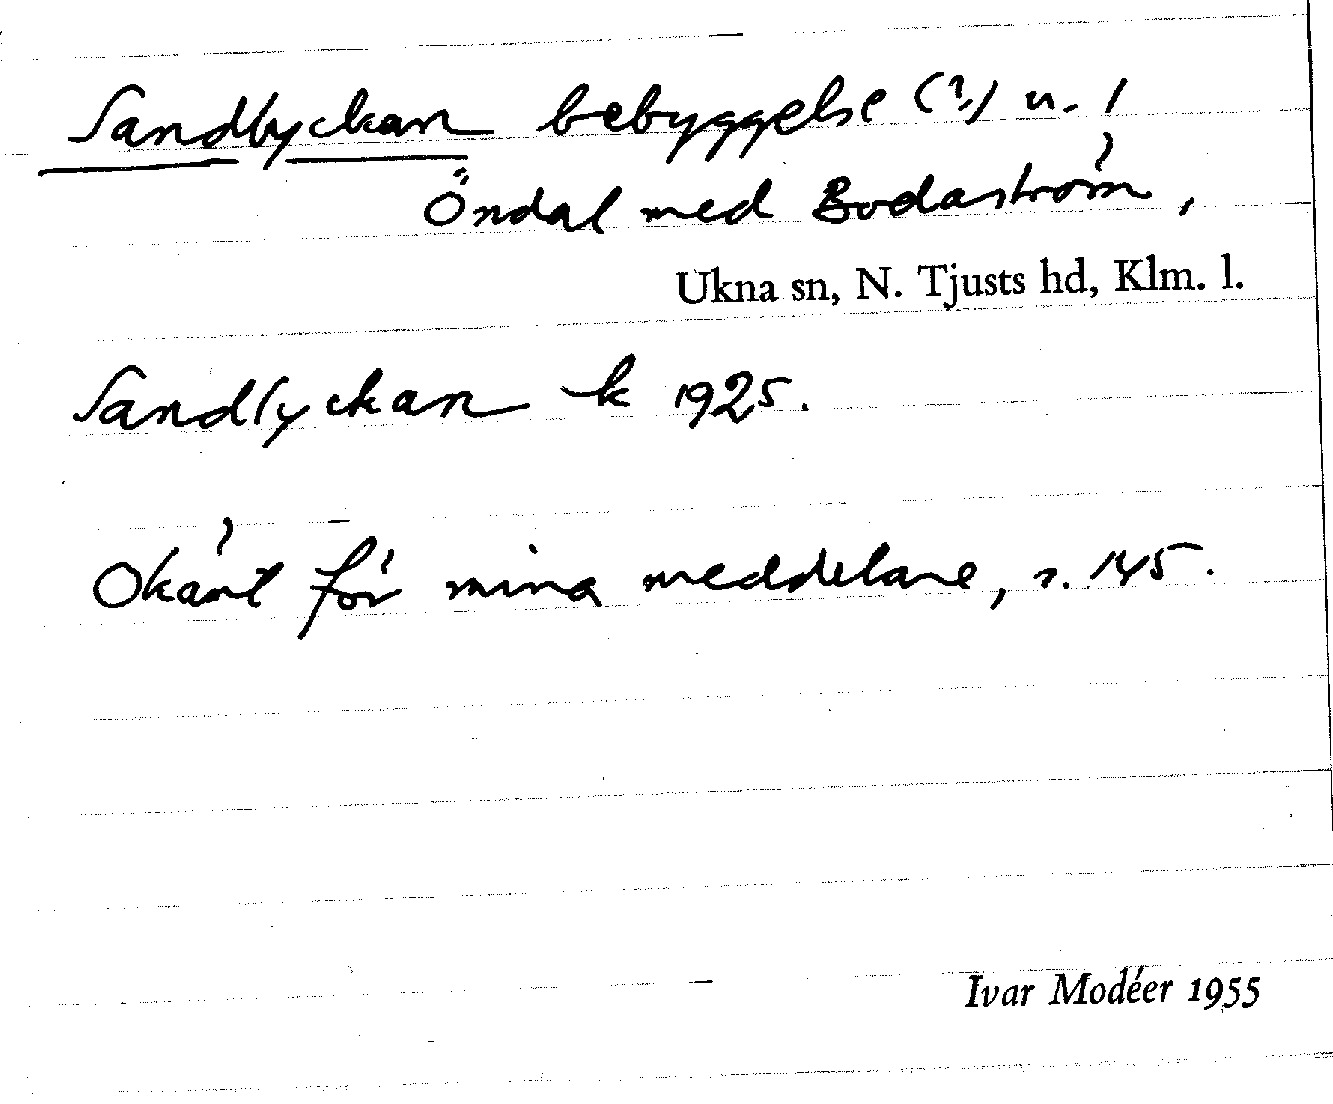 Sandlyckan bebyggelse (?) u. /
Öndal med Bodaström,
Ukna sn, N. Tjusts hd, Klm. l.
Sandlyckan k 1925.
Okänt för mina meddelare, s. 145.
Ivar Modéer 1955